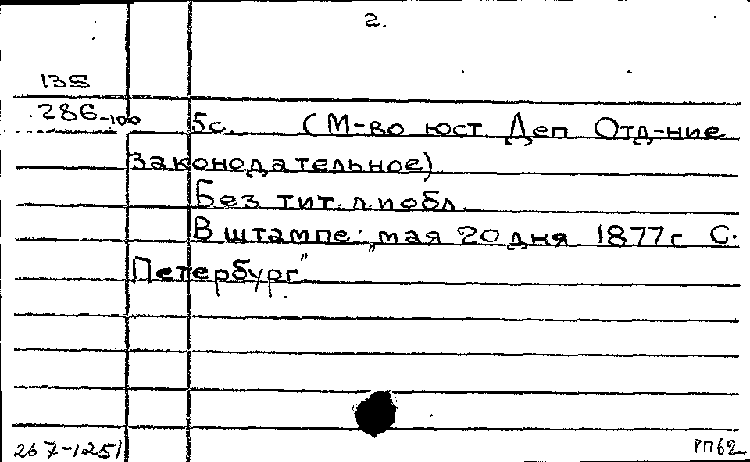 2.
138
286-100
5с. (М-во юст. Деп. Отд-ние
законодательное)
Без тит. л. и обл.
В штампе: „мая 20 дня 1877 г. С.
Петербург".
267-1251
РП62